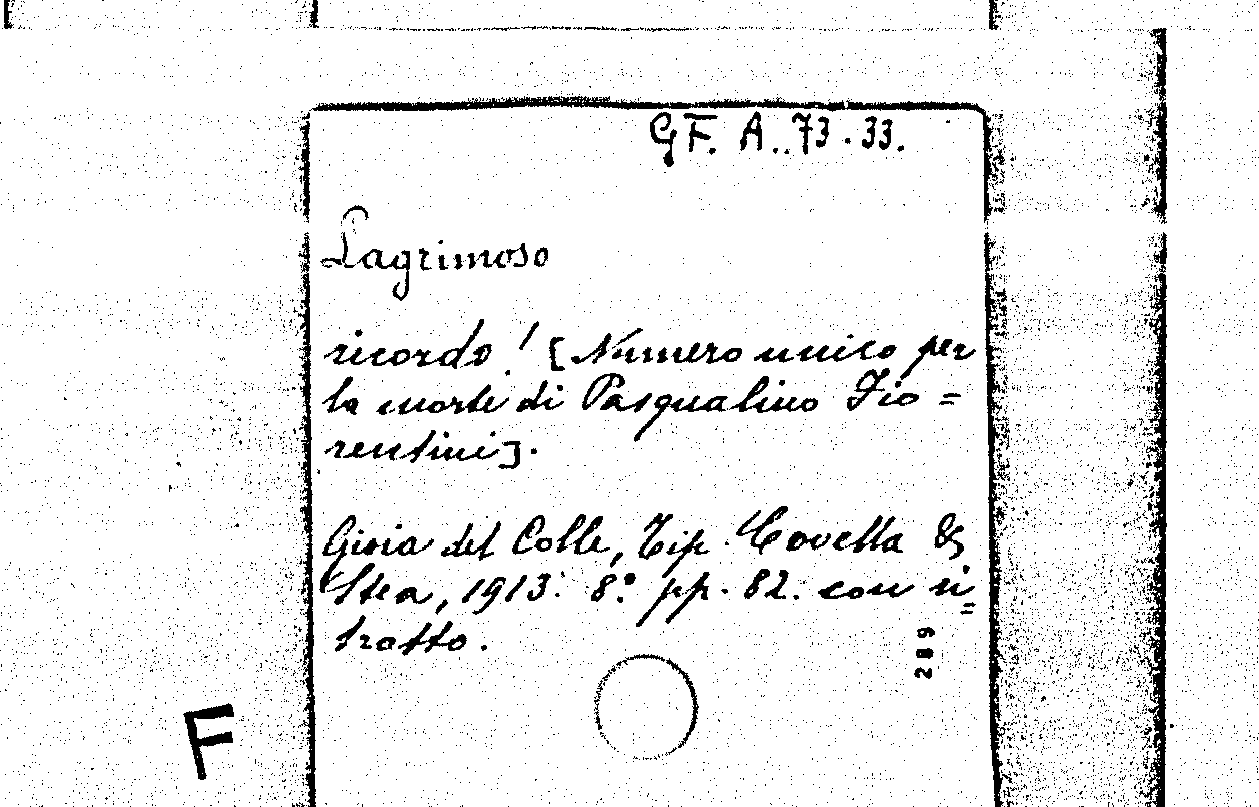 GF. A..73.33.
Lagrimoso
ricordo! [Numero unico per
la morte di Pasqualino Fio=
rentini].
Gioia del Colle, Tip. Covella &
Stea, 1913. 8.° pp. 82. con ri=
tratto.
289
F